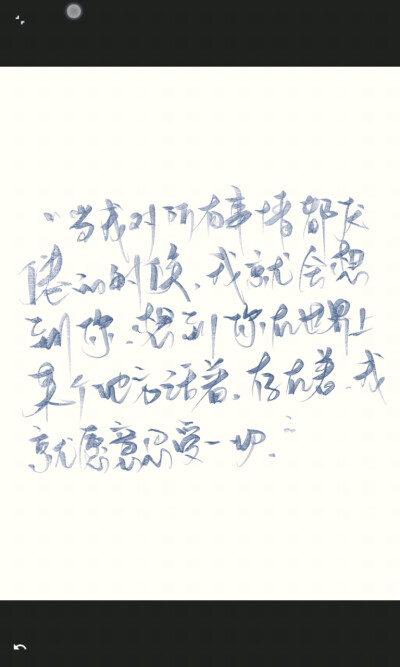 “当我对所有事情都厌
倦的时候，我就会想
到你，想到你在世界上
某个地方活着，存在着，我
就愿意忍受一切。”